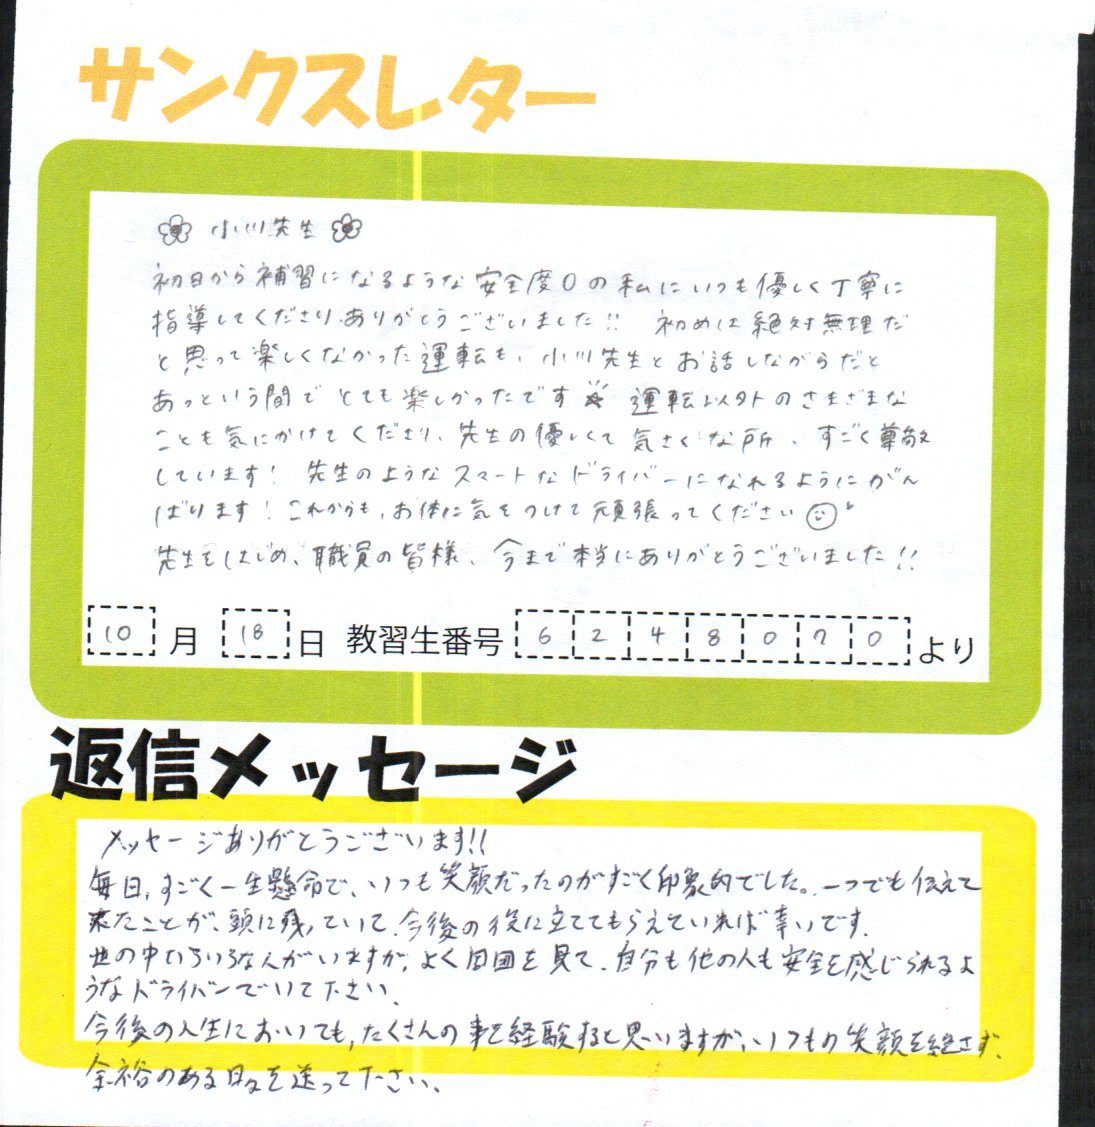 サンクスレター
小川先生
初日から補習になるような安全度0の私にいつも優しく丁寧に
指導してくださり、ありがとうございました!! 初めは絶対無理だ
と思って楽しくなかった運転も、小川先生とお話しながらだと
あっという間でとても楽しかったです 運転以外のさまざまな
ことも気にかけてくださり、先生の優しくて気さくな所、すごく尊敬
しています! 先生のようなスマートなドライバーになれるようにがん
ばります! これからも、お体に気をつけて頑張ってください
先生をはじめ、職員の皆様、今まで本当にありがとうございました!!
10月18日 教習生番号 6248070より
返信メッセージ
メッセージありがとうございます!!
毎日、すごく一生懸命で、いつも笑顔だったのがすごく印象的でした。一つでも伝えて
来たことが、頭に残っていて、今後の役に立ててもらえていれば幸いです。
世の中いろいろな人がいますが、よく周囲を見て、自分も他の人も安全を感じられるよ
うなドライバーでいて下さい。
今後の人生においても、たくさんの事を経験すると思いますが、いつもの笑顔を絶さず、
余裕のある日々を送って下さい。